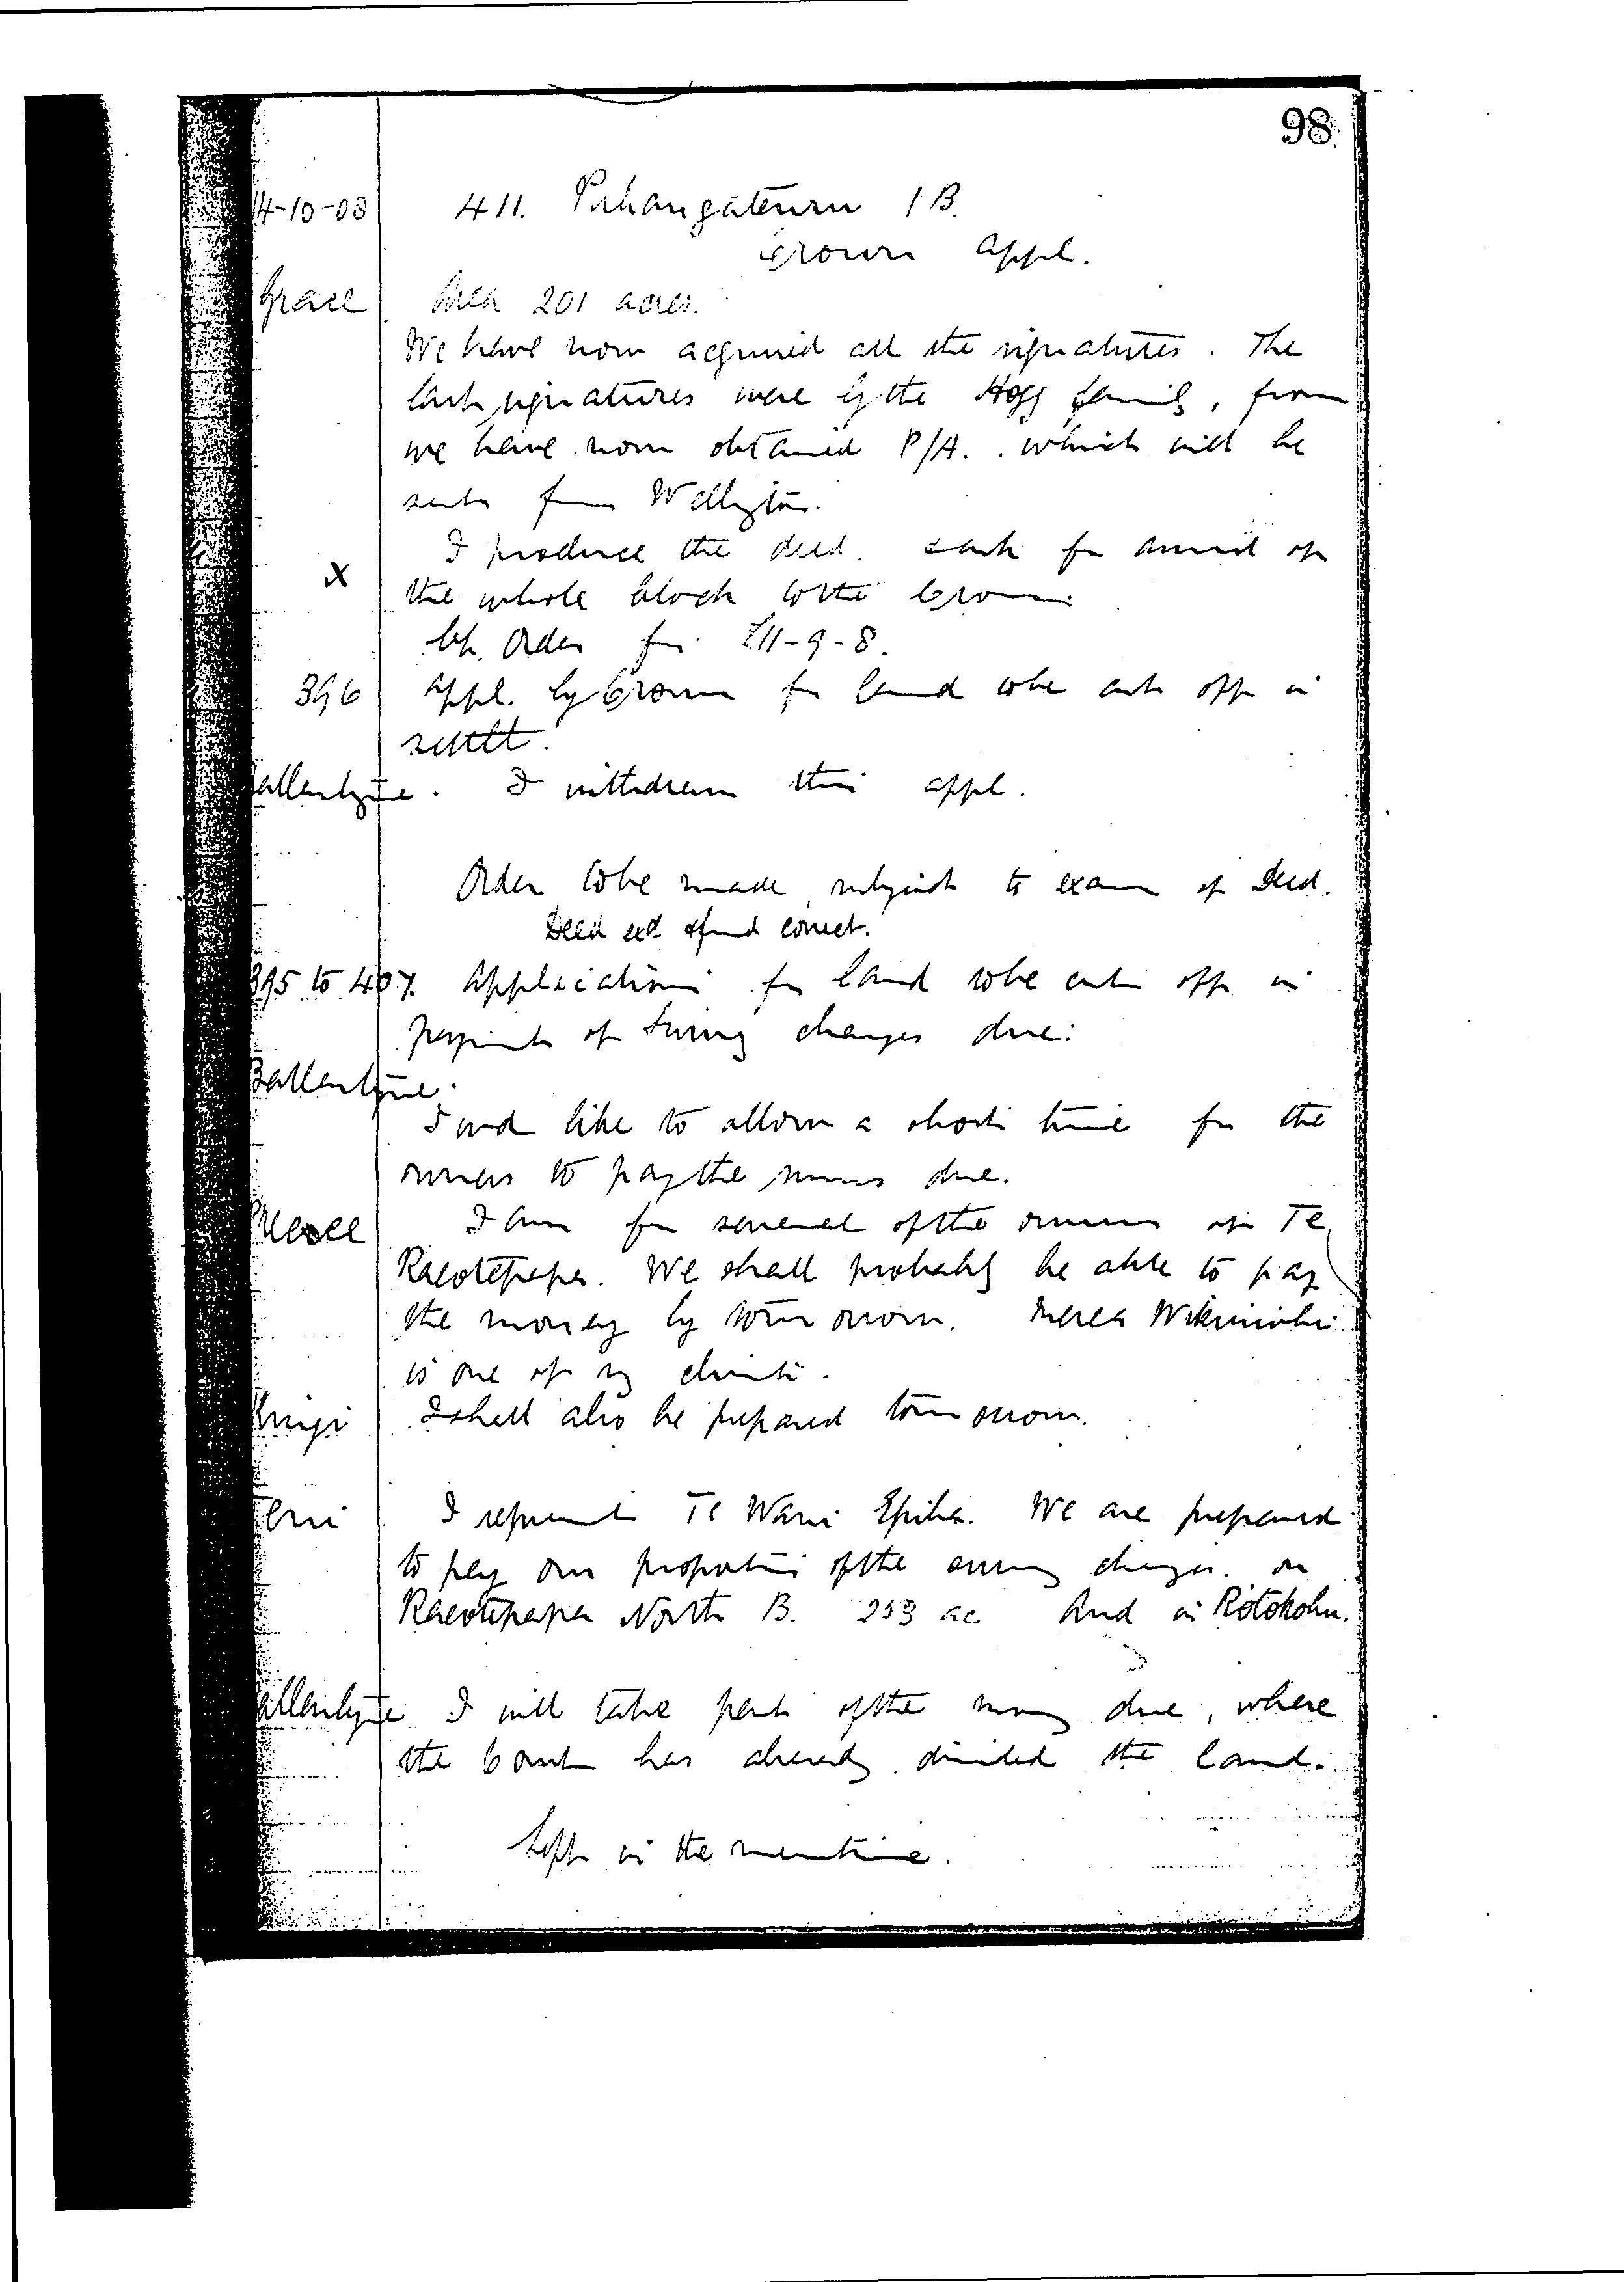 98.
14-10-08 411. Pukangateuru 1B.
Crown Appl.
Grace Area 201 acres.
We have now acquired all the signatures. The
last signatures were by the Hogg family, from
we have now obtained P/A. which will be
sent from Wellington.
I produce the deed. & ask for award of
X the whole block to the Crown
Ch. Order for £11-9-8.
396 Appl. by Crown for land to be cut off in
settlt.
allentyne. I withdraw this appl.
Order to be made, subject to exam of Deed.
Deed exd & found correct.
395 to 407. Applications for land to be cut off in
payment of survey charges due:
Ballentyne.
I wd like to allow a short time for the
owners to pay the sums due.
I am for several of the owners of Te
Raeotepapa. We shall probably be able to pay
the money by tomorrow. Merea Wikiriwhi
is one of my clients.
I shall also be prepared tomorrow.
I represent Te Wani Epiha. We are prepared
to pay our proportion of the survey charges. on
Raeotepapa North B. 253 ac. And in Rotokohu.
allentyne I will take part of the money due, where
the Court has already divided the land.
Left in the meantime.